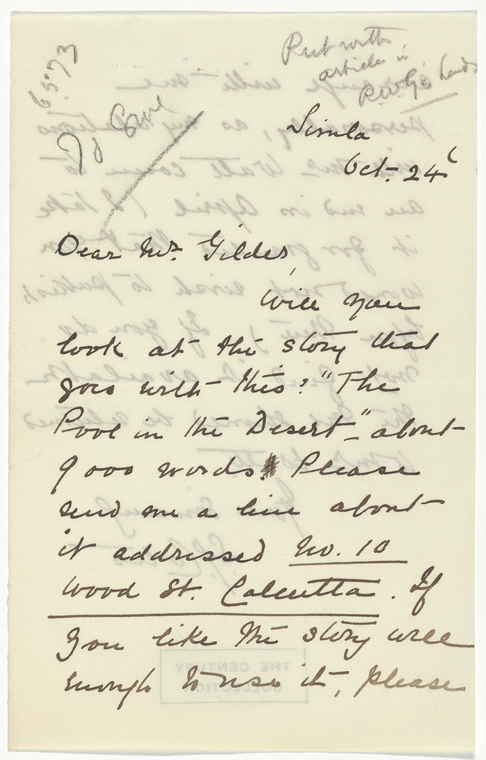 6573
Put with
article in
RWG's hands
Simla
Oct. 24th
Dear Mr. Gilder,
Will you
look at the story that
goes with this? "The
Pool in the Desert" - about
9000 words. Please
send me a line about
it addressed No. 10
Wood St. Calcutta. If
you like the story well
enough to use it, please
THE CENTURY
COLLECTION